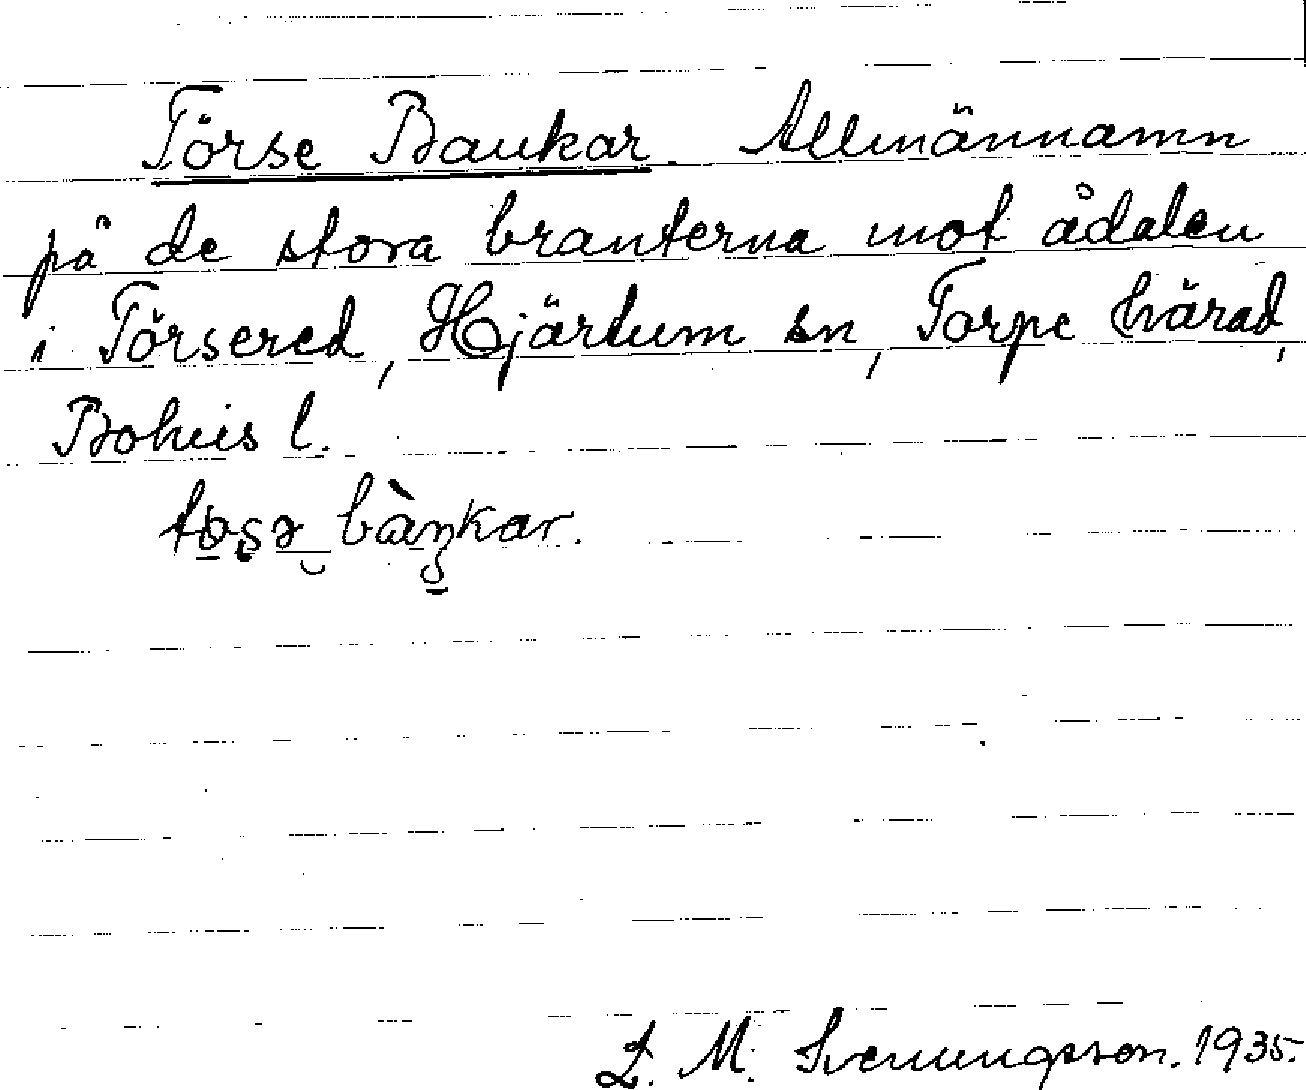 Törse Bankar. Allmännamn
på de stora branterna mot ådalen
i Törsered, Hjärtum sn, Torpe härad,
Bohus l.
bàŋkar.
L. M. Svenungsson. 1935.